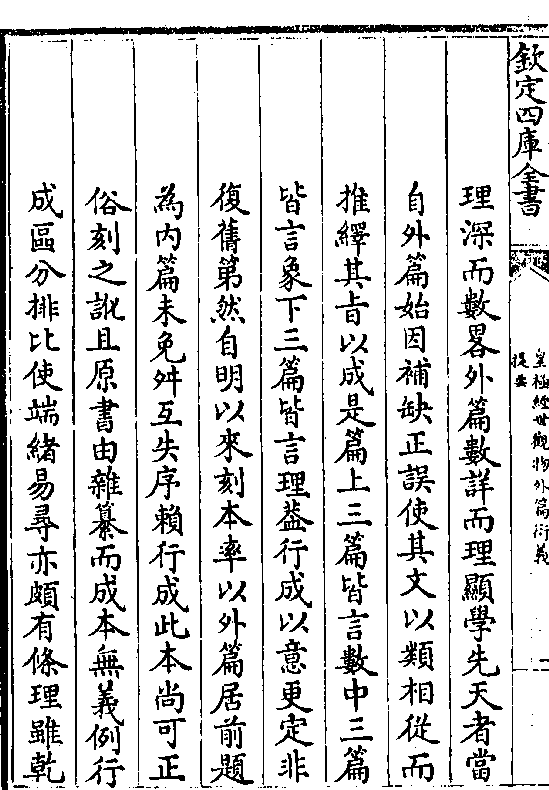 欽定四庫全書
皇極經世觀物外篇衍義
提要
一
理深而數畧外篇數詳而理顯學先天者當
自外篇始因補缺正誤使其文以類相從而
推繹其旨以成是篇上三篇皆言數中三篇
皆言象下三篇皆言理葢行成以意更定非
復舊第然自明以來刻本率以外篇居前題
為内篇未免舛互失序頼行成此本尚可正
俗刻之訛且原書由雜纂而成本無義例行
成區分排比使端緒易尋亦頗有條理雖乾